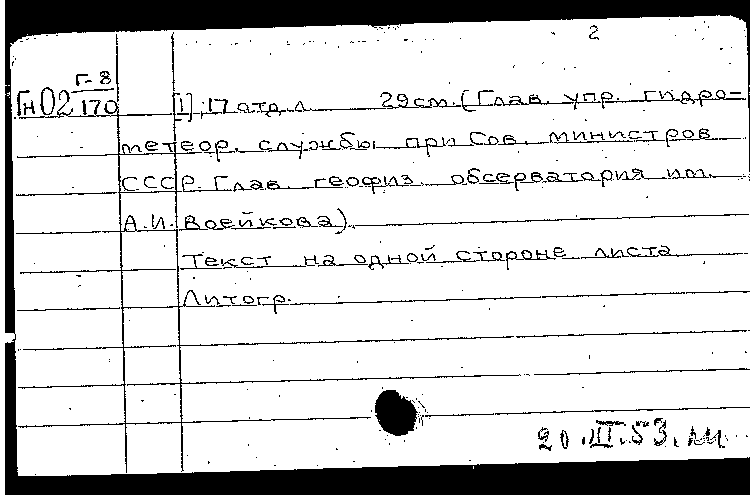 2
Г-8
Гн02 170 [1], 17 отд. л. 29 см. (Глав. упр. гидро-
метеор. службы при Сов. министров
СССР. Глав. геофиз. обсерватория им.
А.И. Воейкова).
Текст на одной стороне листа
Литогр.
20.III.53.